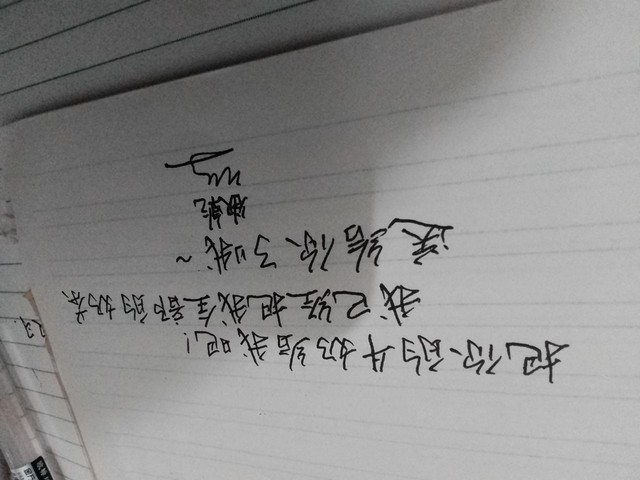 把你的牛奶给我吧!
我已经把我全部的奶茶
送给你了哦~